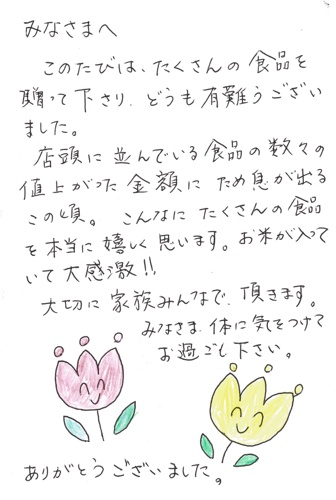 みなさまへ
このたびは、たくさんの食品を
贈って下さり、どうも有難うござい
ました。
店頭に並んでいる食品の数々の
値上がった金額にため息が出る
この頃。こんなにたくさんの食品
を本当に嬉しく思います。お米が入って
いて大感激!!
大切に家族みんなで、頂きます。
みなさま、体に気をつけて
お過ごし下さい。
ありがとうございました。